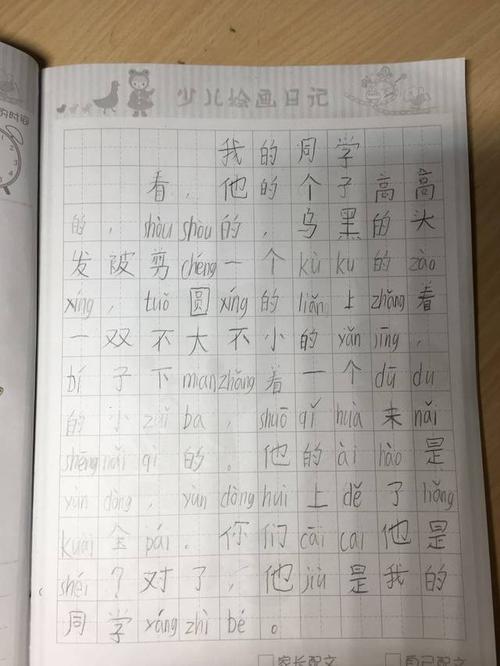 少儿绘画日记
我的同学
看，他的个子高高
的，shòu shòu的，乌黑的头
发陂剪chéng一个kù ku的zào
xíng，tuǒ圆xíng的liǎn上zhǎng着
一双不大不小的yǎn jīng，
bí子下mian zhǎng着一个dū du
的小zuǐ ba，shuō qǐ huà来nǎi
shēng nǎi qì的。他的ài hào是
yùn dòng，yùn dòng huì上dě了liǎng
kuài金pái。你们cāi cai他是
shéi？对了，他jiù是我的
同学xáng zhì bé。
家长配文
自己配文
的时间